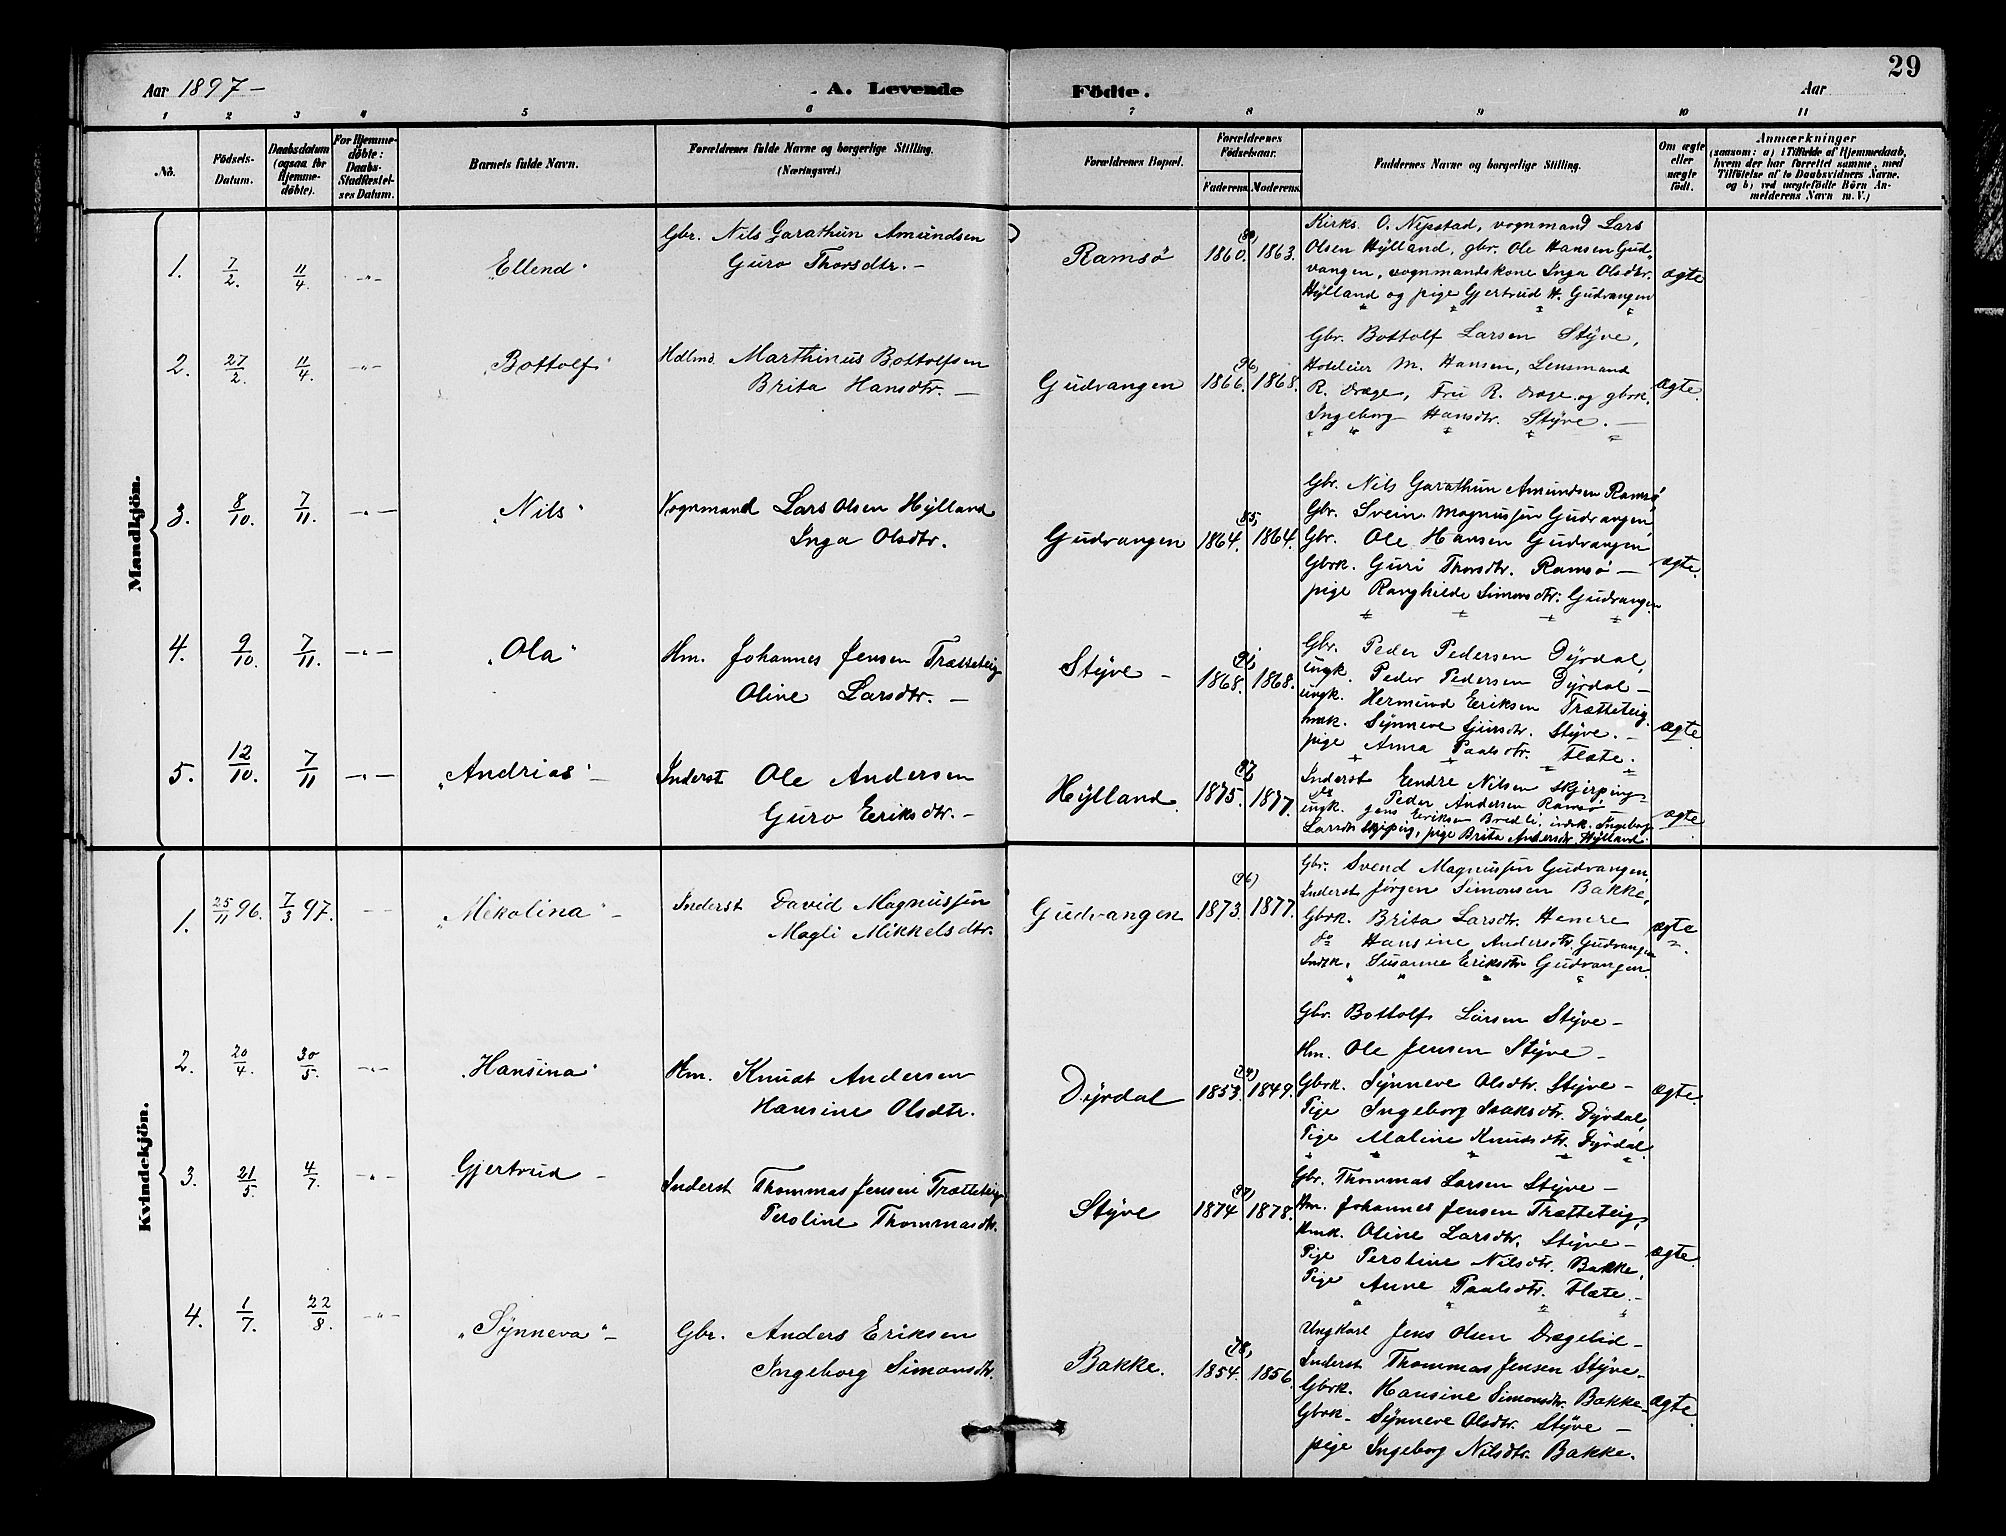 29
Aar 1897 –
A. Levende Födte.
Aar
1 2 3 4 5 6 7 8 9 10 11
No.
Födsels-Datum.
Daabsdatum (ogsaa for Hjemme-döbte).
For Hjemme-döbte: Daabs-Stadfæstel-ses Datum.
Barnets fulde Navn.
Forældrenes fulde Navne og borgerlige Stilling. (Næringsvei.)
Forældrenes Bopæl.
Forældrenes Födselsaar.
Faderens. Moderens.
Faddernes Navne og borgerlige Stilling.
Om ægte eller uægte födt.
Anmærkninger
(saasom: a) i Tilfælde af Hjemmedaab,
hvem der har forrettet samme, med
Tilföielse af to Daabsvidners Navne.
og b) ved uægtefödte Börn An-
melderens Navn m. V.)
Mandkjön.
1. 7/2. 11/4. -"- "Ellend"
Gbr. Nils Garathun Amundsen
Guro Thorsdtr. –
Ramsö 1860. 1863.
Kirks. O. Nipstad, vognmand Lars
Olsen Hÿlland, gbr. Ole Hansen Gud-
vangen, vognmandskone Inga Olsdtr.
Hÿlland og pige Gjertrud H. Gudvangen
ægte
2. 27/2. 11/4. -"- "Bottolf"
Hdlmd Marthinus Bottolfsen
Brita Hansdtr. –
Gudvangen 1866. (96) 1868.
Gbr. Bottolf Larsen Stÿve,
Hoteleier M. Hansen, Lensmand
R. Dræge, Fru R. Dræge og gbrk.
Ingeborg Hansdtr. Stÿve. –
ægte.
3. 8/10. 7/11. -"- "Nils"
Vognmand Lars Olsen Hÿlland
Inga Olsdtr.
Gudvangen 1864. 1864.
Gbr. Nils Garathun Amundsen Ramsö
Gbr. Svein Magnussen Gudvangen
Gbr. Ole Hansen Gudvangen
Gbrk. Guri Thorsdtr. Ramsö –
pige Ranghilde Simonsdtr. Gudvangen
ægte.
4. 9/10. 7/11. -"- "Ola"
Hm. Johannes Jensen Trætteteig
Oline Larsdtr. –
Stÿve – 1868. (91) 1868.
Gbr. Peder Pedersen Dÿrdal,
ungk. Peder Pedersen Dÿrdal –
ungk. Hermund Eriksen Trætteteig.
hmk. Sÿnneve Stÿve. –
pige Anna Paalsdtr. Flate. –
ægte
5. 12/10. 7/11 -"- "Andrias" –
Inderst Ole Andersen
Guro Eriksdtr. –
Hÿlland. 1875. 1877.
Inderst Endre Nilsen Skjerping
ungk. Peder Andersen Ramsö –
Jens Eriksen Bredli, indk. Ingeborg
Larsdtr Skjerping, pige Brita Andersdtr. Hÿlland.
ægte
Kvindekjön.
1. 25/11 96. 7/3 97. "Mikolina" –
Inderst David Magnussen
Magli Mikkelsdtr.
Gudvangen 1873. (96) 1877.
Gbr. Svend Magnussen Gudvangen,
Inderst Jörgen Simonsen Bakke,
Gbrk. Brita Larsdtr. Hemre
do Hansine Andersdtr. Gudvangen
Indk. Susanne Eriksdtr Gudvangen.
ægte
2. 20/4. 30/5. -"- "Hansina"
Hm. Knudt Andersen
Hansine Olsdtr.
Dÿrdal 1853. (74) 1849.
Gbr. Bottolf Larsen Stÿve –
Hm. Ole Jensen Stÿve –
Gbrk. Sÿnneve Olsdtr. Stÿve –
Pige Ingeborg Isaksdtr. Dÿrdal
Pige Maline Knudsdtr. Dÿrdal.
ægte.
3. 21/5. 4/7. -"- Gjertrud –
Inderst Thommas Jensen Trætteteig
Peroline Thommasdtr.
Stÿve 1874 (97) 1878.
Gbr. Thommas Larsen Stÿve –
Hm. Johannes Jensen Trætteteig,
Hmk. Oline Larsdtr. Stÿve –
Pige Peroline Nilsdtr. Bakke,
Pige Anne Paalsdtr. Flate. –
ægte.
4. 1/7. 22/8. -"- "Sÿnneva" –
Gbr. Anders Eriksen
Ingeborg Simonsdtr.
Bakke. 1854. (78) 1856.
Ungkarl Jens Olsen Drægelid –
Inderst Thommas Jensen Stÿve –
Gbrk. Hansine Simonsdtr. Bakke –
Gbrk – Sÿnneve Olsdtr. Stÿve –
pige Ingeborg Nilsdtr. Bakke.
ægte.